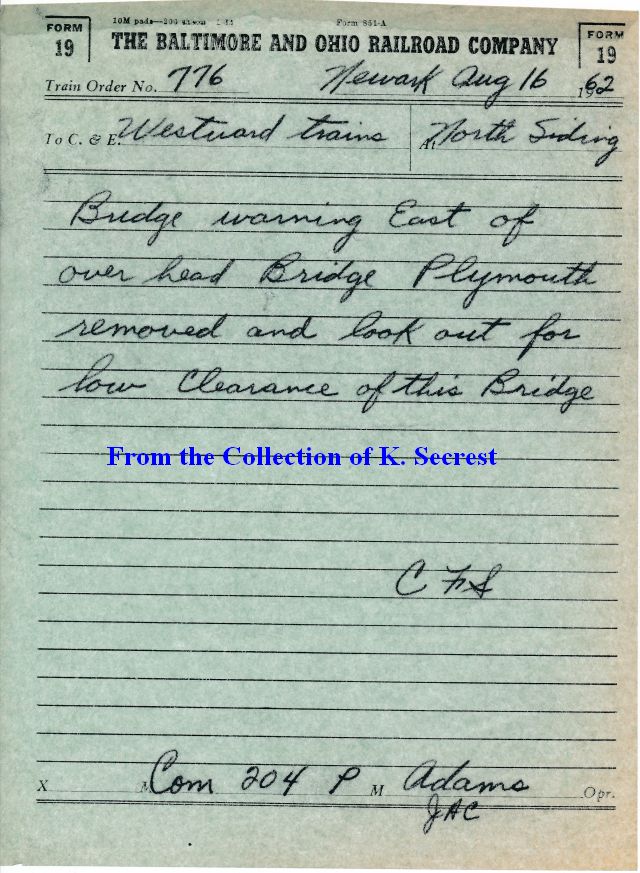 10M pads—200 Form 851-A
FORM 19 THE BALTIMORE AND OHIO RAILROAD COMPANY FORM 19
Train Order No. 776 Newark Aug 16 1962
To C. & E. Westward trains At North Siding
Bridge warning East of
over head Bridge Plymouth
removed and look out for
low Clearance of this Bridge
From the Collection of K. Secrest
C F S
X M Com 204 P M Adams Opr.
JAC